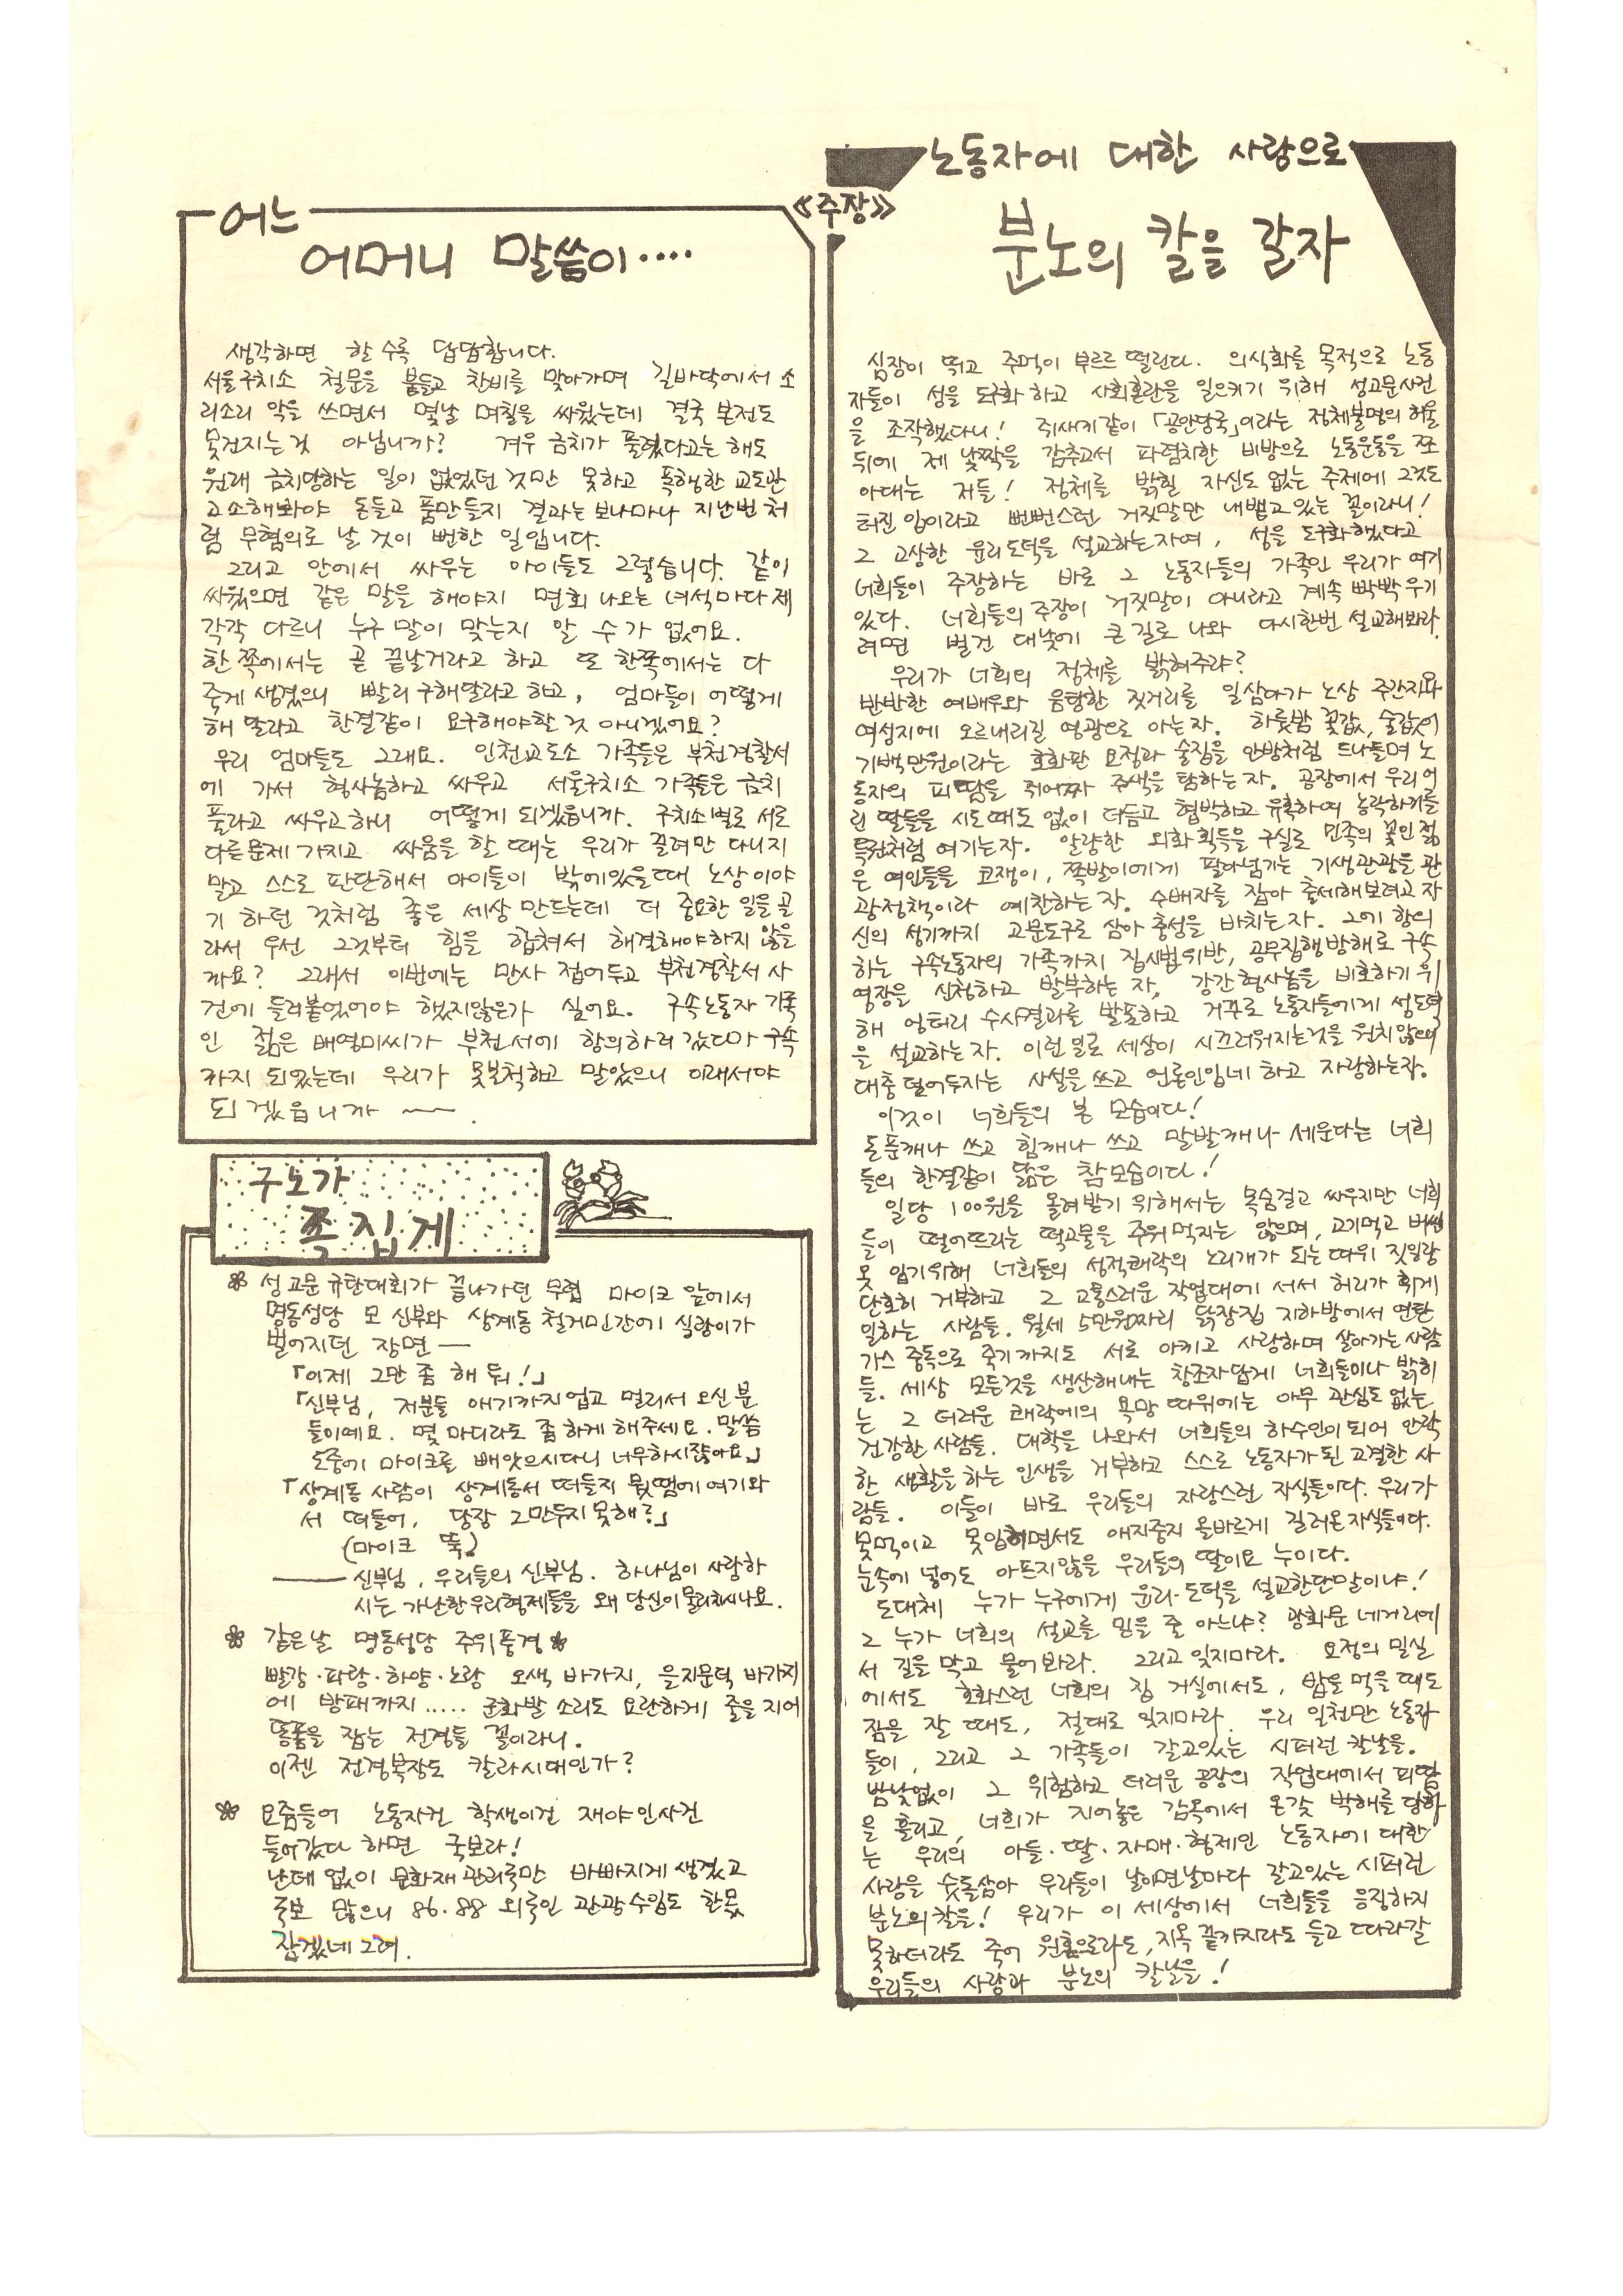 어느
어머니 말씀이....
생각하면 할수록 답답합니다.
서울구치소 철문을 붙들고 찬비를 맞아가며 길바닥에서 소
리소리 악을 쓰면서 몇날 며칠을 싸웠는데 결국 본전도
못건지는것 아닙니까? 겨우 금치가 풀렸다고는 해도
원래 금치당하는 일이 없었던 것만 못하고 폭행한 교도관
고소해봐야 돈들고 품만들지 결과는 보나마나 지난번처
럼 무혐의로 날 것이 뻔한 일입니다.
그리고 안에서 싸우는 아이들도 그렇습니다. 같이
싸웠으면 같은 말을 해야지 면회 나오는 녀석마다 제
각각 다르니 누구 말이 맞는지 알 수가 없어요.
한쪽에서는 곧 끝날거라고 하고 또 한쪽에서는 다
죽게 생겼으니 빨리 구해달라고 하고, 엄마들이 어떻게
해 달라고 한결같이 요구해야할 것 아니겠어요?
우리 엄마들도 그래요. 인천교도소 가족들은 부천경찰서
에 가서 형사놈하고 싸우고 서울구치소 가족들은 금치
풀라고 싸우고하니 어떻게 되겠읍니까. 구치소별로 서로
다른문제 가지고 싸움을 할 때는 우리가 끌려만 다니지
말고 스스로 판단해서 아이들이 밖에있을때 노상이야
기 하던 것처럼 좋은 세상 만드는데 더 중요한 일을 골
라서 우선 그것부터 힘을 합쳐서 해결해야하지 않을
까요? 그래서 이번에는 만사 접어두고 부천경찰서 사
건에 들러붙었어야 했지않은가 싶어요. 구속노동자 가족
인 젊은 배영미씨가 부천서에 항의하러 갔다가 구속
까지 되었는데 우리가 못본척하고 말았으니 이래서야
되겠읍니까 ~.
구노가
쪽집게
❀ 성고문 규탄대회가 끝나가던 무렵 마이크 앞에서
명동성당 모 신부와 상계동 철거민간에 실랑이가
벌어지던 장면 —
「이제 그만 좀 해 둬!」
「신부님, 저분들 애기까지업고 멀리서 오신 분
들이예요. 몇 마디라도 좀 하게 해주세요. 말씀
도중에 마이크를 빼앗으시다니 너무하시잖아요.」
「상계동 사람이 상계동서 떠들지 뭣땜에 여기와
서 떠들어, 당장 그만두지못해?」
(마이크 뚝)
—— 신부님, 우리들의 신부님. 하나님이 사랑하
시는 가난한우리형제들을 왜 당신이물리치시나요.
❀ 같은날 명동성당 주위풍경❀
빨강·파랑·하양·노랑 오색 바가지, 을지문덕 바가지
에 방패까지..... 군화발 소리도 요란하게 줄을 지어
똥폼을 잡는 전경들 꼴이라니.
이젠 전경복장도 칼라시대인가?
❀ 요즘들어 노동자건 학생이건 재야인사건
들어갔다 하면 국보라!
난데 없이 문화재관리국만 바빠지게 생겼고
국보 많으니 86.88 외국인 관광수입도 한몫
잡겠네 그려.
노동자에 대한 사랑으로
≪주장≫
분노의 칼을 갈자
심장이 뛰고 주먹이 부르르 떨린다. 의식화를 목적으로 노동
자들이 성을 도구화 하고 사회혼란을 일으키기 위해 성고문사건
을 조작했다니! 쥐새끼같이 「공안당국」이라는 정체불명의 허울
뒤에 제 낯짝을 감추고서 파렴치한 비방으로 노동운동을 쪼
아대는 저들! 정체를 밝힐 자신도 없는 주제에 그것도
허진 입이라고 뻔뻔스런 거짓말만 내뱉고 있는 꼴이라니!
그 고상한 윤리도덕을 설교하는자여, 성을 도구화했다고
너희들이 주장하는 바로 그 노동자들의 가족인 우리가 여기
있다. 너희들의 주장이 거짓말이 아니라고 계속 빡빡 우기
려면 벌건 대낮에 큰길로 나와 다시한번 설교해봐라.
우리가 너희의 정체를 밝혀주랴?
반반한 여배우와 음탕한 짓거리를 일삼아가 노상 주간지와
여성지에 오르내리길 영광으로 아는자. 하룻밤 꽃값, 술값이
기백만원이라는 호화판 요정과 술집을 안방처럼 드나들며 노
동자의 피땀을 쥐어짜 주색을 탐하는자. 공장에서 우리어
린 딸들을 시도때도 없이 더듬고 협박하고 유혹하여 농락하기를
특권처럼 여기는자. 알량한 외화획득을 구실로 민족의 꽃인 젊
은 여인들을 코쟁이, 쪽발이에게 팔아넘기는 기생관광을 관
광정책이라 예찬하는자. 수배자를 잡아 출세해보려고 자
신의 성기까지 고문도구로 삼아 충성을 바치는자. 그에 항의
하는 구속노동자의 가족까지 집시법위반, 공무집행방해로 구속
영장을 신청하고 발부하는 자, 강간형사놈을 비호하기 위
해 엉터리 수사결과를 발표하고 거꾸로 노동자들에게 성도덕
을 설교하는자. 이런 일로 세상이 시끄러워지는것을 원치않으니
대충 덮어두자는 사설을 쓰고 언론인입네 하고 자랑하는자.
이것이 너희들의 본 모습이다!
돈푼깨나 쓰고 힘깨나 쓰고 말발깨나 세운다는 너희
들의 한결같이 닮은 참모습이다!
일당 100원을 올려받기 위해서는 목숨걸고 싸우지만 너희
들이 떨어뜨리는 떡고물을 주워먹지는 않으며, 고기먹고 비싼
옷 입기위해 너희들의 성적쾌락의 노리개가 되는따위 짓일랑
단호히 거부하고 그 고통스러운 작업대에 서서 허리가 휘게
일하는 사람들. 월세 5만원짜리 닭장집 지하방에서 연탄
가스 중독으로 죽기까지도 서로 아끼고 사랑하며 살아가는 사람
들. 세상 모든것을 생산해내는 창조자답게 너희들이나 밝히
는 그 더러운 쾌락에의 욕망 따위에는 아무 관심도 없는
건강한 사람들. 대학을 나와서 너희들의 하수인이 되어 안락
한 생활을 하는 인생을 거부하고 스스로 노동자가된 고결한 사
람들. 이들이 바로 우리들의 자랑스런 자식들이다. 우리가
못먹이고 못입히면서도 애지중지 올바르게 길러온자식들이다.
눈속에 넣어도 아프지않을 우리들의 딸이요 누이다.
도대체 누가 누구에게 윤리·도덕을 설교한단말이냐!
그 누가 너희의 설교를 믿을 줄 아느냐? 광화문 네거리에
서 길을 막고 물어봐라. 그리고 잊지마라. 요정의 밀실
에서도 호화스런 너희의 집 거실에서도, 밥을 먹을 때도
잠을 잘 때도, 절대로 잊지마라. 우리 일천만 노동자
들이, 그리고 그 가족들이 갈고있는 시퍼런 칼날을.
밤낮없이 그 위험하고 더러운 공장의 작업대에서 피땀
을 흘리고, 너희가 지어놓은 감옥에서 온갖 박해를 당하
는 우리의 아들·딸·자매·형제인 노동자에 대한
사랑을 숫돌삼아 우리들이 날이면날마다 갈고있는 시퍼런
분노의칼을! 우리가 이 세상에서 너희들을 응징하지
못하더라도 죽어 원혼으로라도, 지옥 끝까지라도 들고 따라갈
우리들의 사랑과 분노의 칼날을!